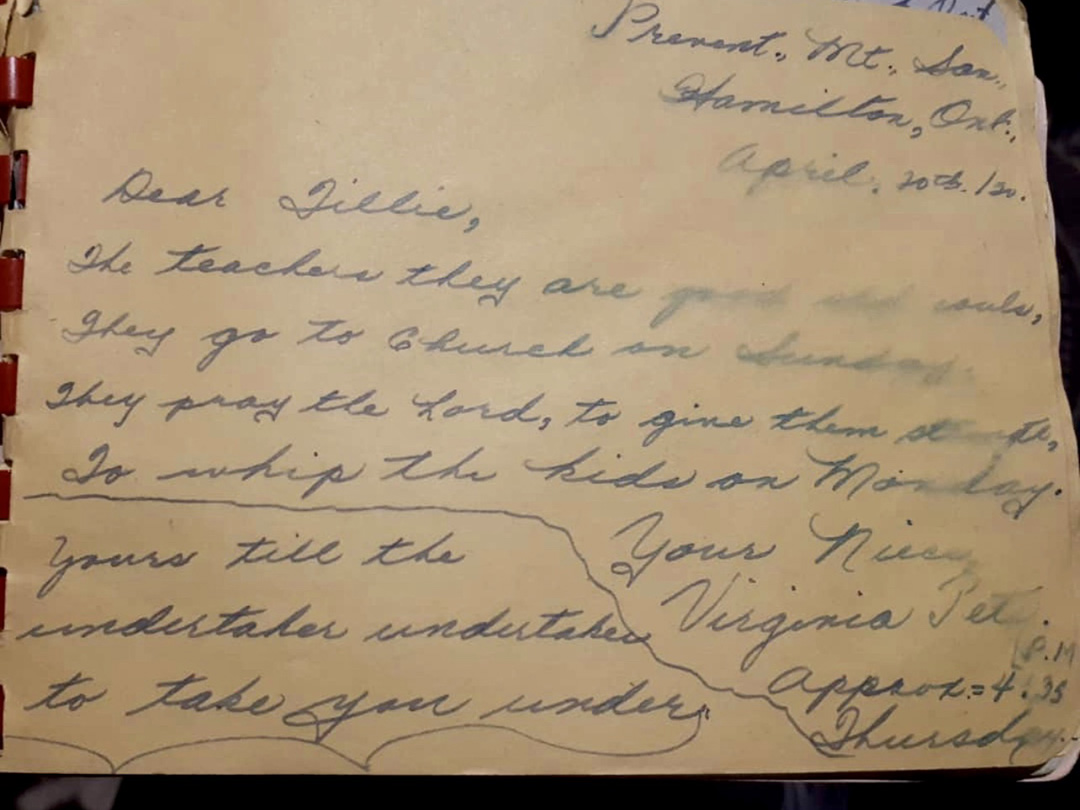 Prevent., Mt., San.,
Hamilton, Ont.,
April, 20th. /20.
Dear Tillie,
The teachers they are good old souls,
They go to Church on Sunday.
They pray the Lord, to give them
To whip the kids on Monday.
Yours till the
undertaker undertakes
to take you under.
Your Niece
Virginia
Approx.= 4.35
P.M
Thursday.